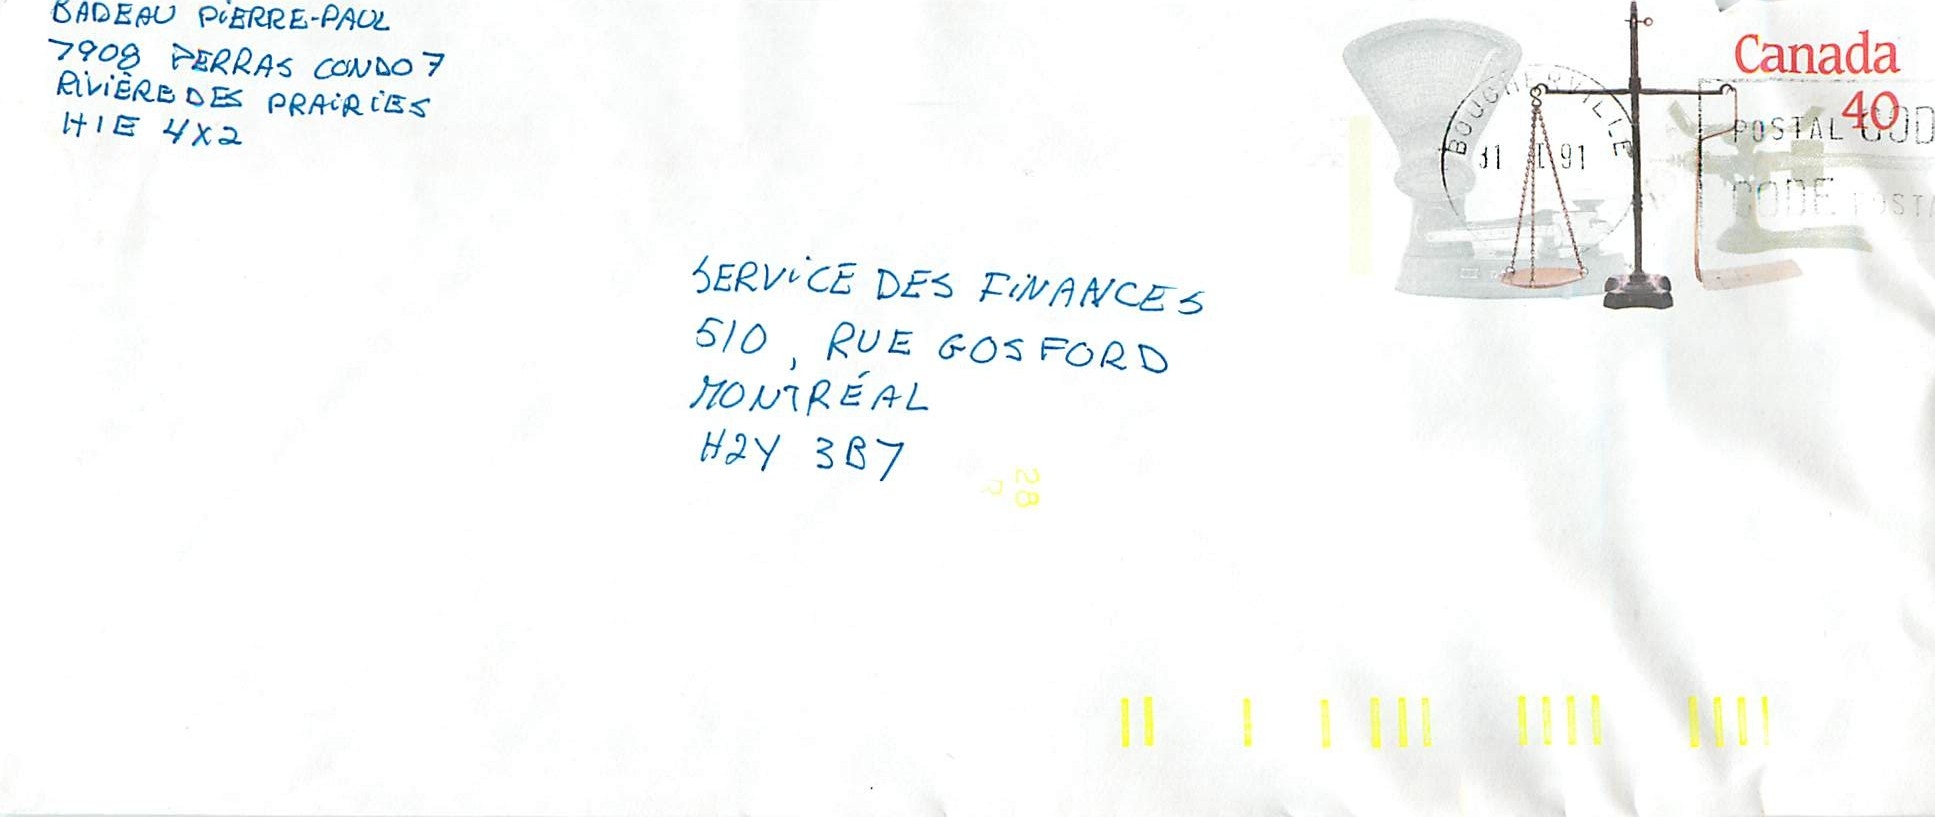 BADEAU PIERRE-PAUL
7908 PERRAS CONDO 7
RIVIÈRE DES PRAIRIES
H1E 4X2
Canada
40
BOUCHERVILLE
31 91
POSTAL COD
CODE POSTA
SERVICE DES FINANCES
510, RUE GOSFORD
MONTRÉAL
H2Y 3B7
28
R